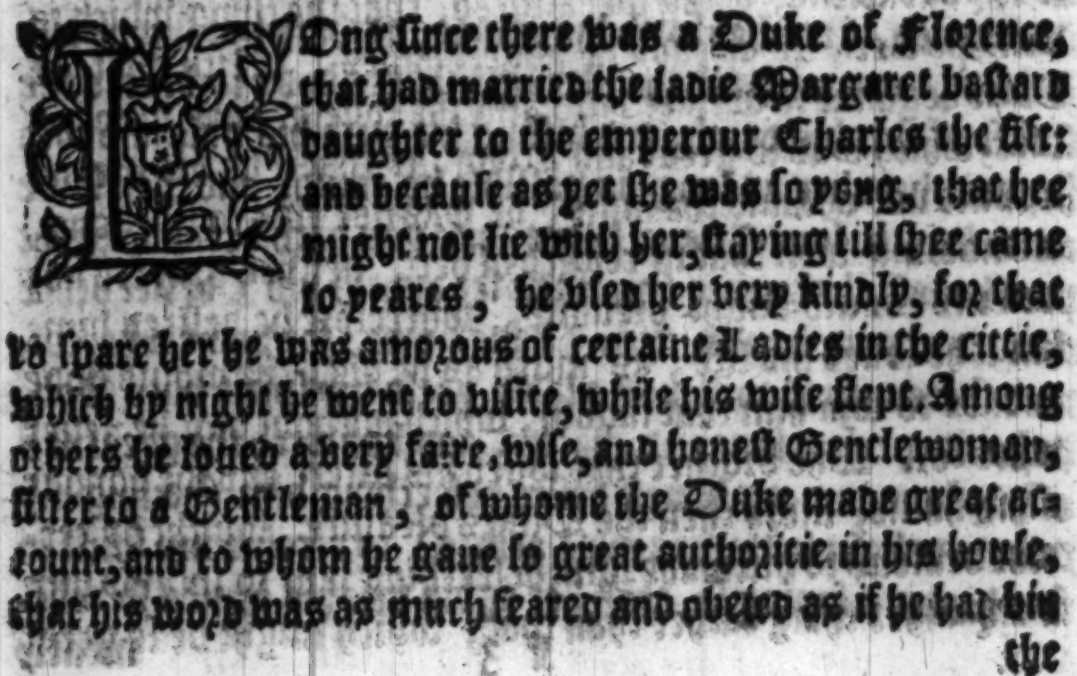 LOng ſince there was a Duke of Florence,
that had married the ladie Margaret baſtard
daughter to the emperour Charles the fift:
and becauſe as yet ſhe was ſo yong, that hee
might not lie with her, ſtaying till ſhee came
to yeares, he vſed her very kindly, for that
to ſpare her he was amorous of certaine Ladies in the cittie,
which by night he went to viſite, while his wife ſlept. Among
others he loued a very faire, wiſe, and honeſt Gentlewoman,
ſiſter to a Gentleman, of whome the Duke made great ac-
count, and to whom he gaue ſo great authoritie in his houſe,
that his word was as much feared and obeied as if he had bin
the